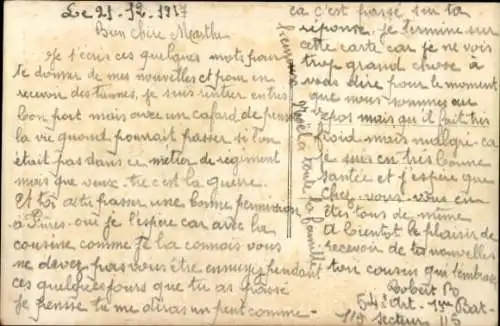 Le 21-12-1917
Bien chère Marthe
Je t'écris ces quelques mots pour
te donner de mes nouvelles et pour en
recevoir des tiennes, je suis rentrer en très
bon port mais avec un cafard de
la vie quand pourrait passer si l'on
était pas dans ce métier de regiment
mais que veux-tu c'est la guerre.
Et toi a tu passer une bonne permission
à oui je l'espère car avec la
cousine, comme je la connais vous
ne devez pas vous être ennuyés pendant
ces quelques jours que tu as passé
Je pense tu me diras un peut comme-
ca c'est passé sur ta
réponse. Je termine sur
cette carte car je ne vois
trop grand chose à
vous dire pour le moment
que nous sommes au
repos mais qu'il fait très
froid mais malgré ça
je suis en très bonne
santée et j'espère que
chez vous vous en
êtes tous de même
A bientôt le plaisir de
recevoir de ta nouvelles
ton cousin qui t'embrasse
Robert
54e Art. 1ère Bat-
secteur 115
toute la famille